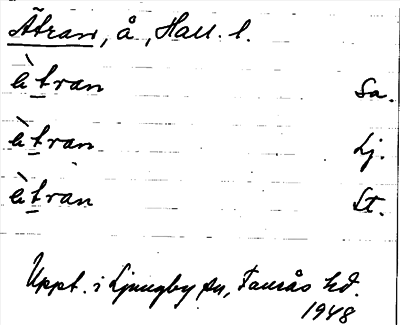 Ätran, å, Hall. l.
ὲtran Sa.
ὲtran Lj.
ὲtran St.
Uppt. i Ljungby sn, Faurås hd.
1948